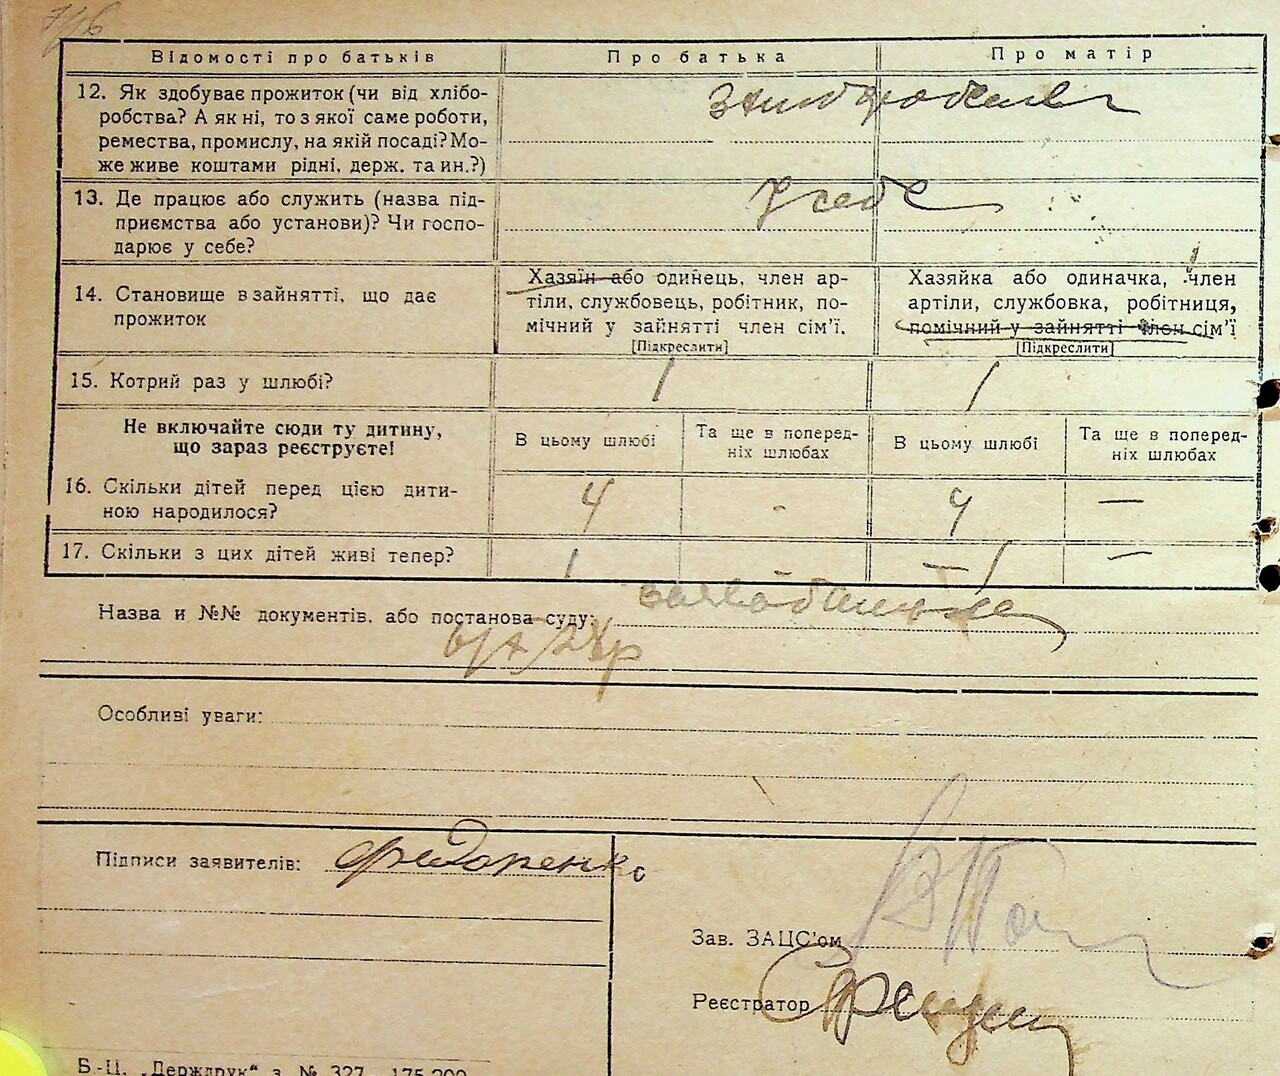 7/16
Відомості про батьків Про батька Про матір
12. Як здобуває прожиток (чи від хлібо-
робства? А як ні, то з якої саме роботи,
ремества, промислу, на якій посаді? Мо-
же живе коштами рідні, держ. та ин.?)
13. Де працює або служить (назва під-
приємства або установи)? Чи госпо-
дарює у себе?
У себе
14. Становище в зайнятті, що дає
прожиток
Хазяїн або одинець, член ар-
тіли, службовець, робітник, по-
мічний у зайнятті член сім'ї.
[Підкреслити]
Хазяйка або одиначка, член
артіли, службовка, робітниця,
помічний у зайнятті член сім'ї
[Підкреслити]
15. Котрий раз у шлюбі? 1 1
Не включайте сюди ту дитину,
що зараз реєструєте!
В цьому шлюбі
Та ще в поперед-
ніх шлюбах
В цьому шлюбі
Та ще в поперед-
ніх шлюбах
16. Скільки дітей перед цією дити-
ною народилося?
4 - 4 —
17. Скільки з цих дітей живі тепер? 1 — 1 —
Назва и №№ документів, або постанова суду:
Особливі уваги:
Підписи заявителів: Фидоренко
Зав. ЗАЦС'ом
Реєстратор
Б.-Ц. „Держдрук“ з. № 327 175.200